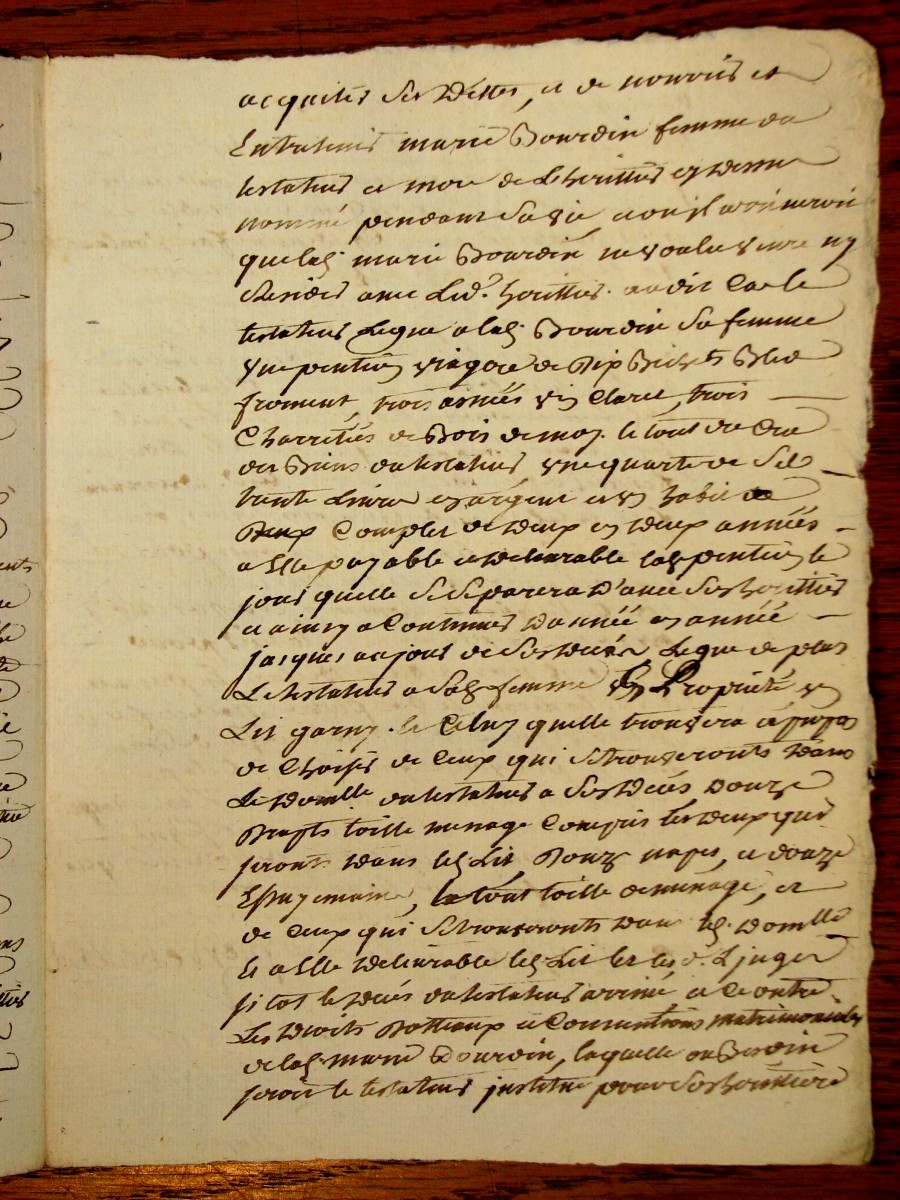 acquiter ses dettes, et de nourrir et
Entretenir marie Bourdin femme du
testateur et mere de Lheritier cy dessus
nommé pendant sa vie, et ou il arriveroit
que lad. marie Bourdin ne voulut vivre ny
resider avec Led. heritier. audit Cas le
testateur Legue a lad. Bourdin sa femme
Une pention viagere de Dix Bichets Bled
froment, trois asnées vin Claret, trois
Charretées de Bois de moz. le tout du Cru
des Biens du testateur, une quarte de Sel
trente Livres en argent et un habit de
Deux Complet de deux en deux années
a Elle payable et delivrable lad. pention le
jour quelle se separera D'avec Sond. heritier
et ainsy a Continuer D'année en année
jusques au jour de Son deces Legue de plus
Le testateur a Sad. femme En Proprieté un
Lit garny. le Celuy quelle trouvera a propos
de Choisir de Ceux qui Se trouveront dans
Le domille du testateur a Son deces douze
Draps toille menage Compris les deux qui
seront dans led. Lit, Douze napes, et douze
Essuymains, le tout toille de menage, et
de Ceux qui Se trouveront dans led. domille
Et a Elle delivrable led. Lit et led. Linger
sitot le deces du testateur arrivé, et Ce outre
Les droits Dotteaux et Conventions matrimoniales
de lad. marie Bourdin, laquelle au Besoin
seroit le testateur institue pour Son heritiere